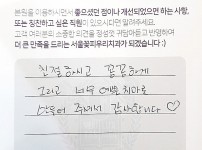 본원을 이용하시면서 좋으셨던 점이나 개선되었으면 하는 사항,
또는 칭찬하고 싶은 직원이 있으시다면 말해주세요.
고객 여러분의 소중한 의견을 정성껏 귀담아듣고 반영하여
더 큰 만족을 드리는 서울꽃피우리치과가 되겠습니다 :)
친절하시고 꼼꼼하게
그리고 너무 예쁜 치아로
만들어 주셔서 감사합니다 ♡